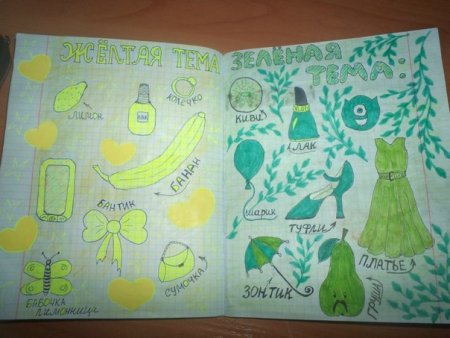 ЖЁЛТАЯ ТЕМА
ЛИМОН
КОЛЕЧКО
БАНАН
БАНТИК
СУМОЧКА
БАБОЧКА
ЛИМОННИЦА
ЗЕЛЁНАЯ
ТЕМА:
КИВИ
ЛАК
ШАРИК
ТУФЛИ
ПЛАТЬЕ
ЗОНТИК
ГРУША